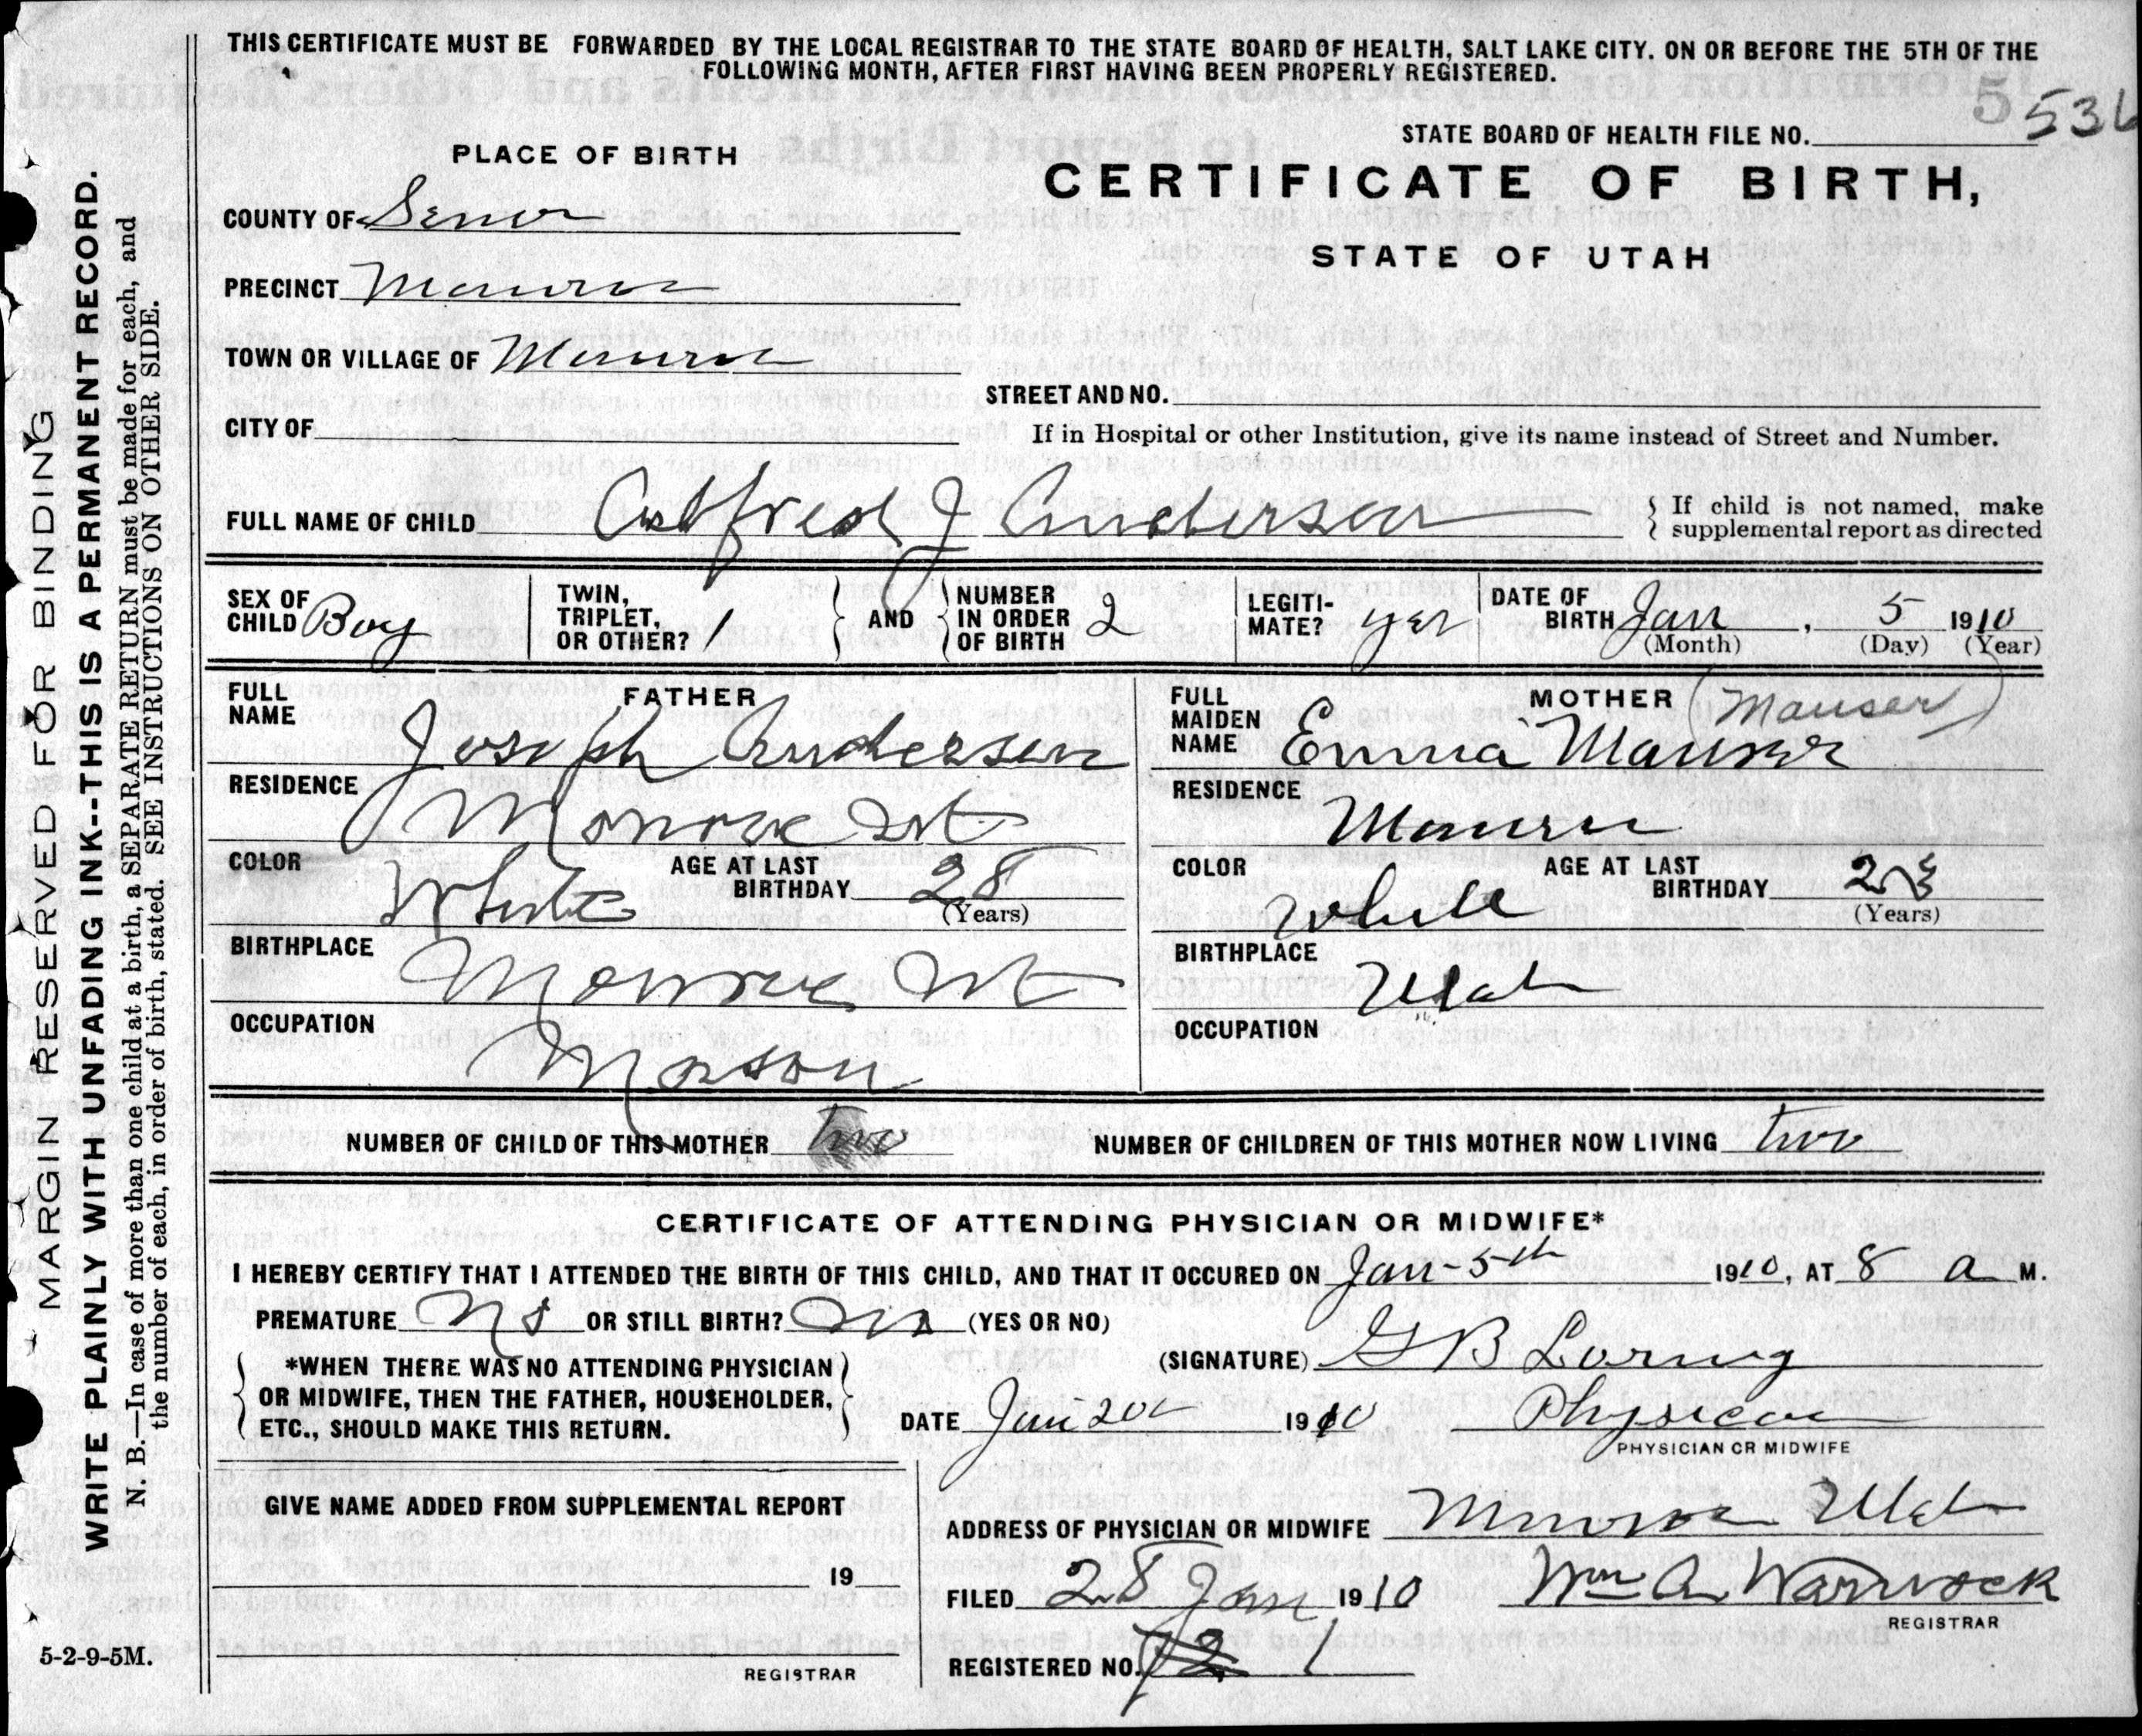 THIS CERTIFICATE MUST BE FORWARDED BY THE LOCAL REGISTRAR TO THE STATE BOARD OF HEALTH, SALT LAKE CITY. ON OR BEFORE THE 5TH OF THE
FOLLOWING MONTH, AFTER FIRST HAVING BEEN PROPERLY REGISTERED.
5 536
STATE BOARD OF HEALTH FILE NO.
PLACE OF BIRTH
CERTIFICATE OF BIRTH,
STATE OF UTAH
COUNTY OF Sevier
PRECINCT Monroe
TOWN OR VILLAGE OF Monroe
STREET AND NO.
CITY OF
If in Hospital or other Institution, give its name instead of Street and Number.
FULL NAME OF CHILD J Anderson
If child is not named, make
supplemental report as directed
SEX OF CHILD Boy
TWIN, TRIPLET, OR OTHER? 1
AND
NUMBER IN ORDER OF BIRTH 2
LEGITI-MATE? yes
DATE OF BIRTH Jan, 5 1910
(Month) (Day) (Year)
FATHER
FULL NAME Joseph Andersen
RESIDENCE Monroe Ut
COLOR White
AGE AT LAST BIRTHDAY 28
(Years)
BIRTHPLACE Monroe Ut
OCCUPATION Mason
MOTHER (Mauser)
FULL MAIDEN NAME Emma Mauser
RESIDENCE Monroe
COLOR White
AGE AT LAST BIRTHDAY
(Years)
BIRTHPLACE Utah
OCCUPATION
NUMBER OF CHILD OF THIS MOTHER two
NUMBER OF CHILDREN OF THIS MOTHER NOW LIVING two
CERTIFICATE OF ATTENDING PHYSICIAN OR MIDWIFE*
I HEREBY CERTIFY THAT I ATTENDED THE BIRTH OF THIS CHILD, AND THAT IT OCCURED ON Jan-5th 1910, AT 8 a M.
PREMATURE No OR STILL BIRTH? No (YES OR NO)
(SIGNATURE) G B Loring
*WHEN THERE WAS NO ATTENDING PHYSICIAN
OR MIDWIFE, THEN THE FATHER, HOUSEHOLDER,
ETC., SHOULD MAKE THIS RETURN.
DATE Jan 1910
Physician
PHYSICIAN OR MIDWIFE
GIVE NAME ADDED FROM SUPPLEMENTAL REPORT
19
REGISTRAR
ADDRESS OF PHYSICIAN OR MIDWIFE Monroe Utah
FILED 28 Jan 1910 Wm A Warnock
REGISTRAR
REGISTERED NO. 1
MARGIN RESERVED FOR BINDING
WRITE PLAINLY WITH UNFADING INK--THIS IS A PERMANENT RECORD.
N. B.—In case of more than one child at a birth, a SEPARATE RETURN must be made for each, and
the number of each, in order of birth, stated. SEE INSTRUCTIONS ON OTHER SIDE.
5-2-9-5M.